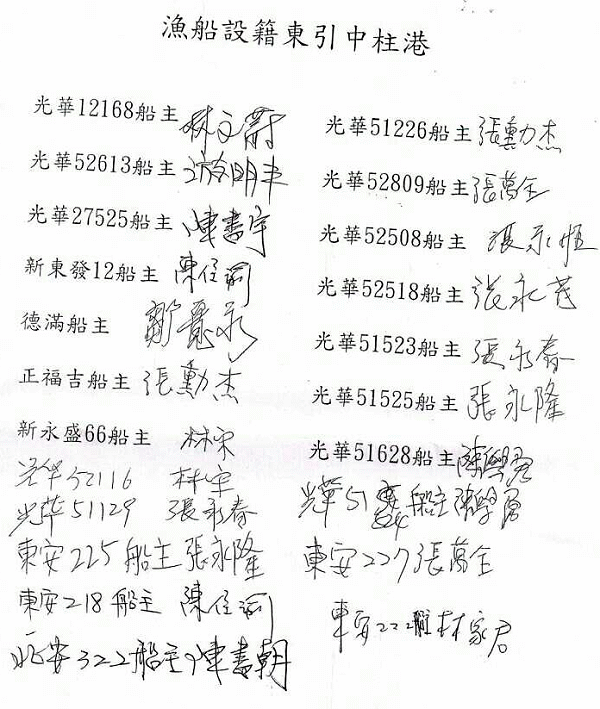 漁船設籍東引中柱港
光華12168船主 林文蔚
光華52613船主 游明丰
光華27525船主 陳書宇
新東發12船主 陳任
德滿船主 永
正福吉船主 張勳杰
新永盛66船主 林宋
光華52116 林宋
光華51129 張永春
東安225船主 張永隆
東安218船主 陳任
322船主 陳書朝
光華51226船主 張勳杰
光華52809船主 張萬全
光華52508船主 張永恒
光華52518船主 張永茂
光華51523船主 張永春
光華51525船主 張永隆
光華51628船主 陳學勇
光華51 船主陳學勇
東安227 張萬全
東安222 林家君